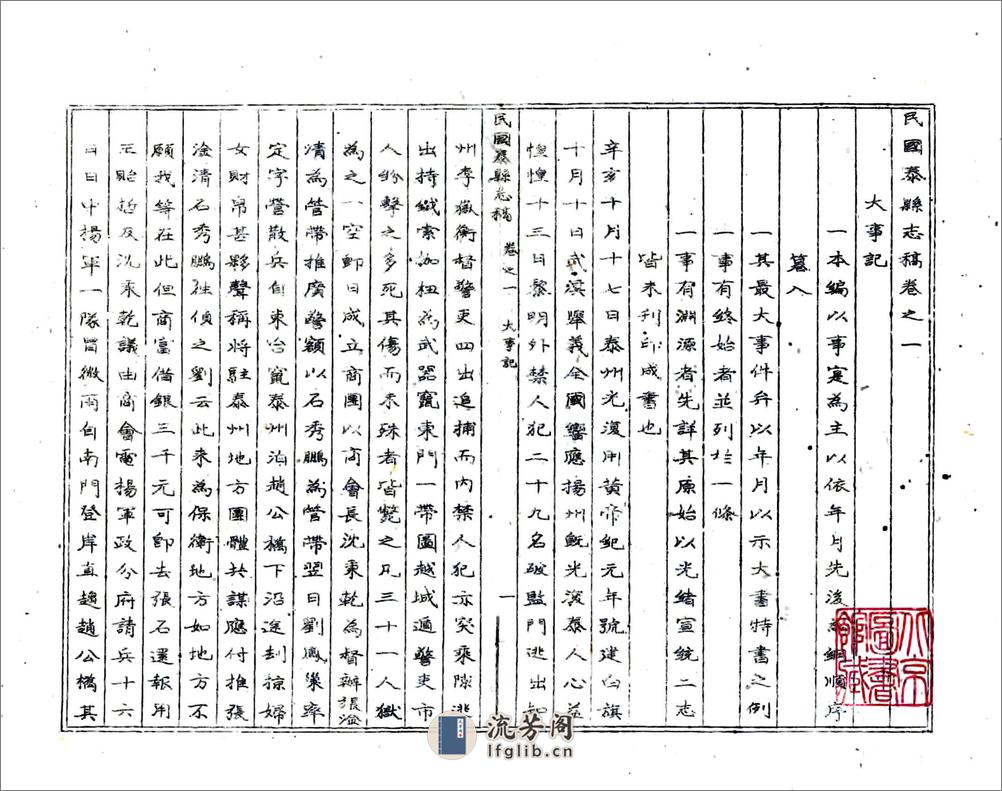 民國泰縣志稿卷之一
大事記
一本編以事寔為主以依年月先後為綱順序
纂入
一其最大事件弁以年月以示大書特書之例
一事有終始者並列於一條
一事有淵源者先詳其原始以光緒宣統二志
皆未刋印成書也
辛亥十月十七日泰州光復用黃帝紀元年號建白旗
十月十日武漢舉義全國響應揚州既光復泰人心益
惶惶十三日黎明外禁人犯二十九名破監門逃出知
民國泰縣志稿 卷之一 大事記 一
州李嶽衡督警吏四出追捕而內禁人犯亦突乘隙逃
出持鐵索枷杻為武器竄東門一帶圖越城適警吏市
人紛擊之多死其傷而未殊者皆斃之凡三十一人獄
為之一空卽日成立商團以商會長沈秉乾為督辦張淦
清為管帶推廣警額以石秀鵬為管帶翌日劉鳳巢率
定字營散兵自東台竄泰州泊趙公橋下沿途刦掠婦
女財帛甚夥聲稱將駐泰州地方團體共謀應付推張
淦清石秀鵬往偵之劉云此來為保衛地方如地方不
願我等在此但商富借銀三千元可卽去張石還報用
王貽哲及沈秉乾議由商會電揚軍政分府請兵十六
日日中揚軍一隊冒微雨自南門登岸直趨趙公橋其
北京圖書館藏
流芳阁
lfglib.cn